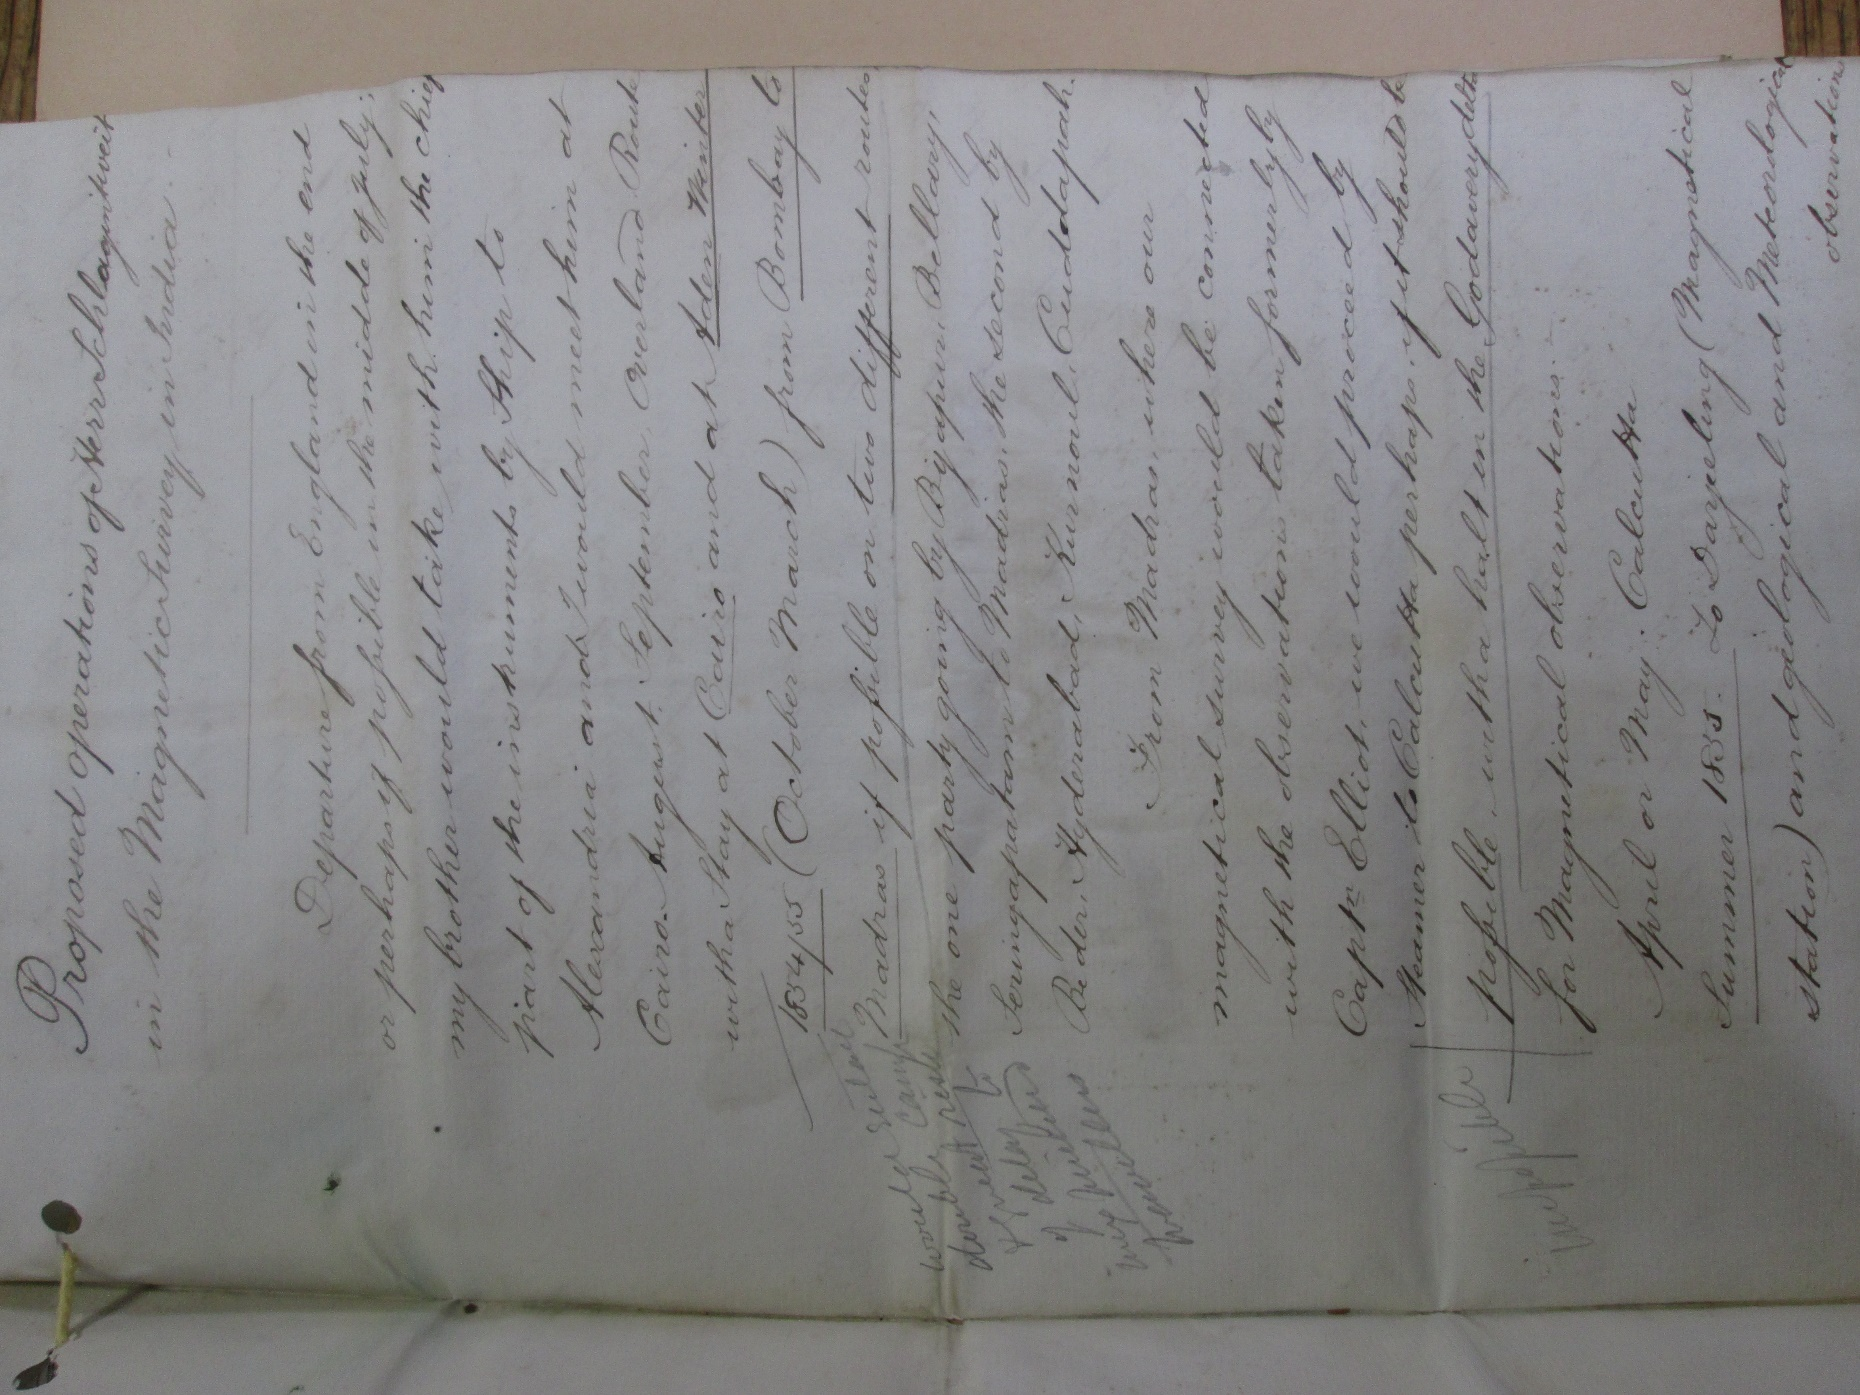 Proposed operations of Herr Schlagintweit
in the Magnetic Survey in India.
Departure from England in the end
or perhaps if possible in the middle of July;
my brother would take with him the chief
part of the instruments by Ship to
Alexandria and I would meet him at
Cairo. August. September. Overland Route
with a Stay at Cairo and at Aden Winter
1854/55 (October March) from Bombay to
Madras if possible on two different routes,
the one party going by Bijapur, Bellary,
Seringapatam to Madras, the second by
Beder, Hyderabad, Kurnoul, Cuddapah.
From Madras, where our
magnetical survey would be connected
with the observations taken formerly by
Captn Elliot, we would proceed by
Steamer to Calcutta perhaps, if it should be
possible, with a halt in the Godavery delta
for Magnetical observations.
April or May. Calcutta
Summer 1855. To Darjeling (Magnetical
station) and geological and Meteorological
observations
would entail
double camp
to
& delay
of
travel